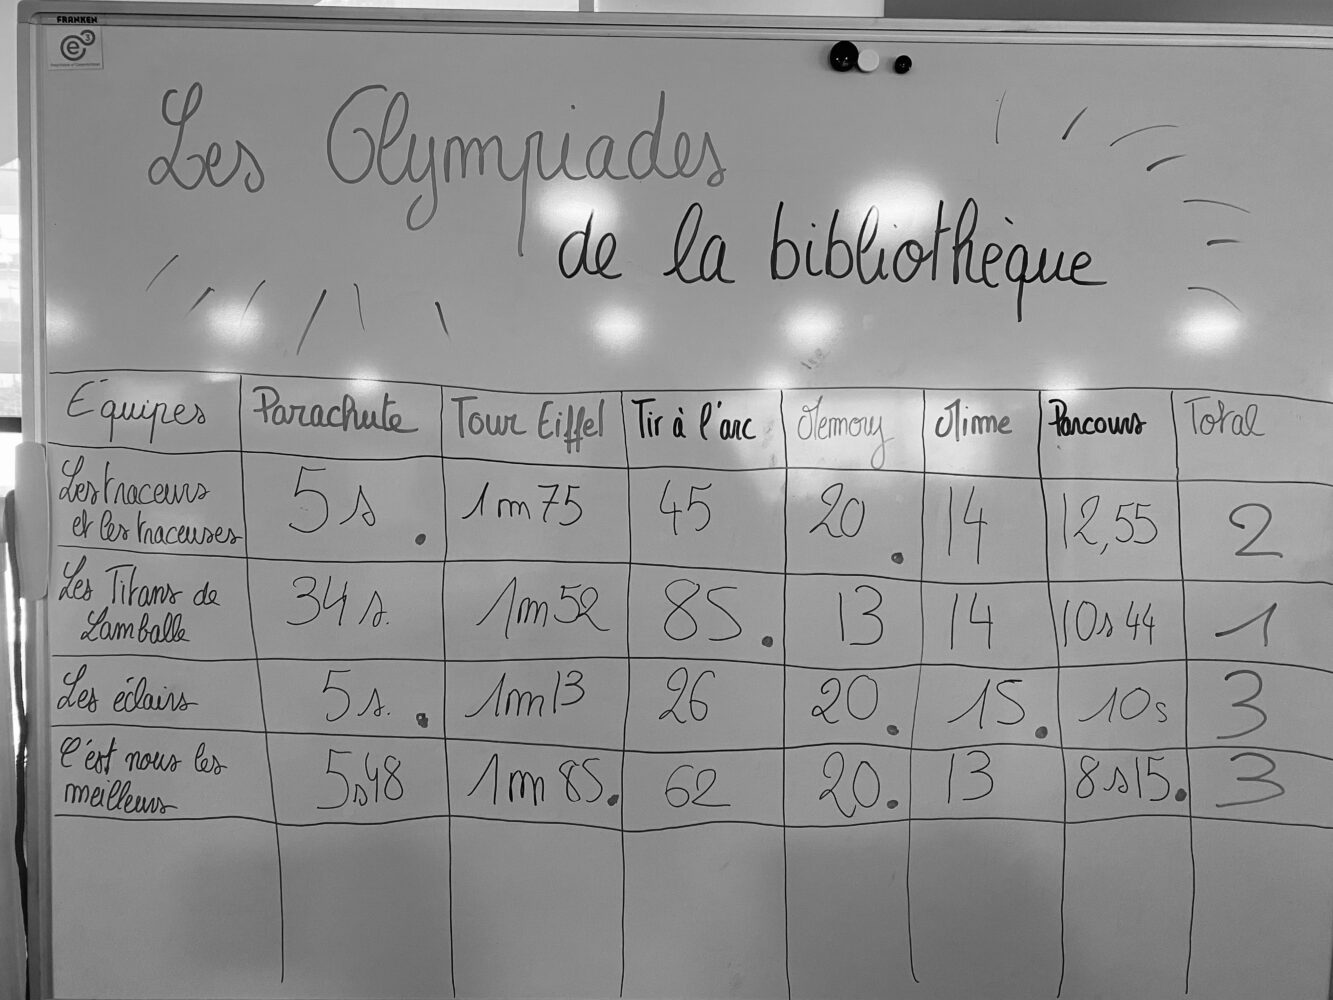 FRANKEN
e3
Les Olympiades
de la bibliothèque
Équipes Parachute Tour Eiffel Tir à l'arc Memory Mime Parcours Total
Les traceurs
et les traceuses 5 s . 1m75 45 20 . 14 12,55 2
Les Titans de
Lamballe 34 s. 1m52 85 . 13 14 10s44 1
Les éclairs 5 s. . 1m13 26 20 . 15 . 10s 3
C'est nous les
meilleurs 5s48 1m85 . 62 20 . 13 8s15 . 3